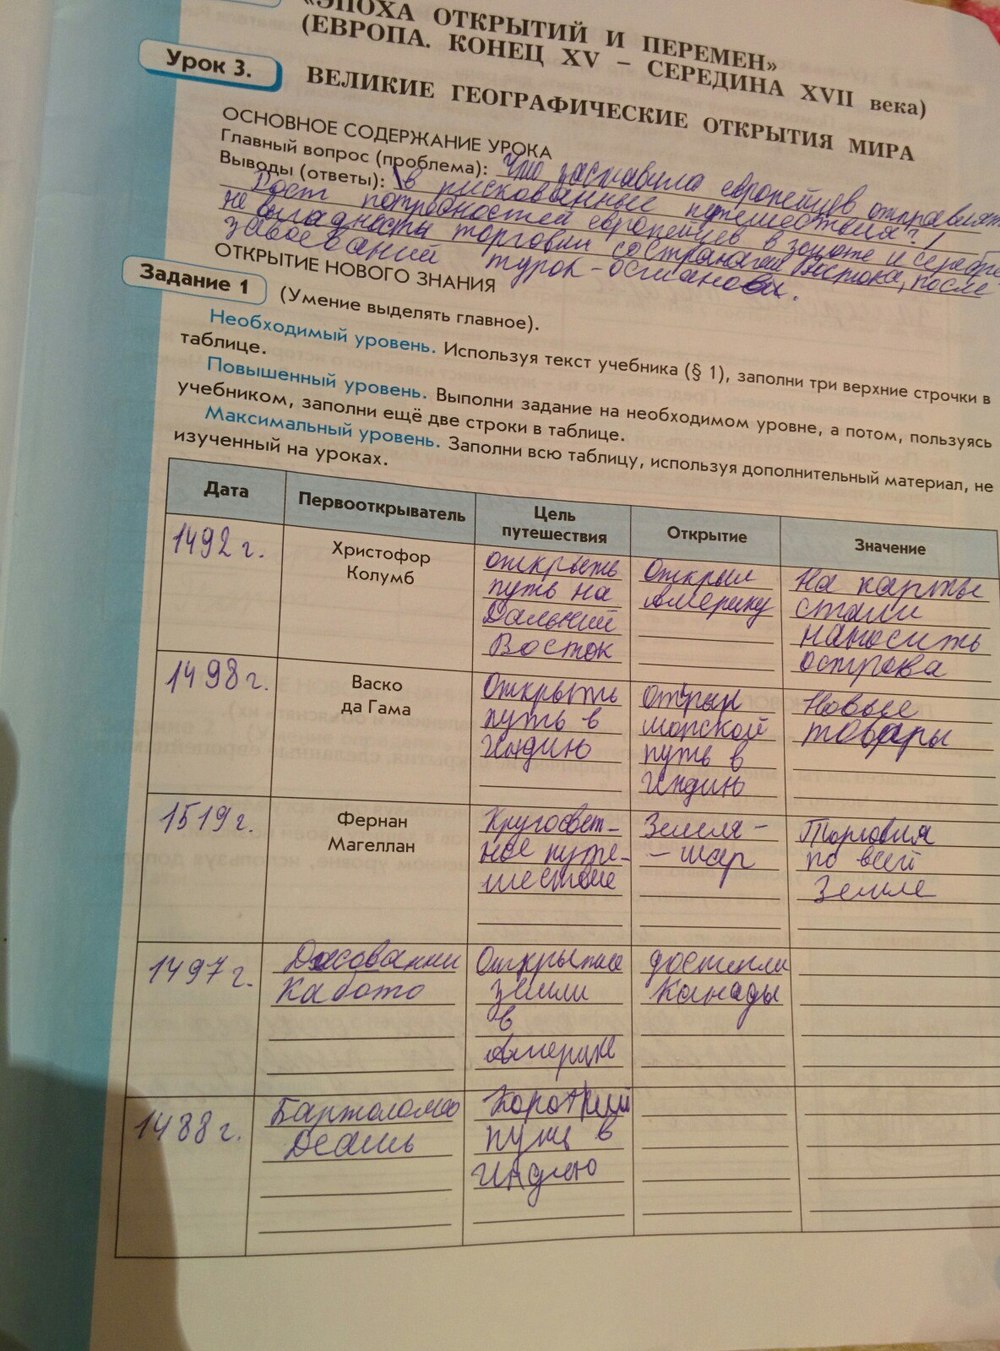 «ЭПОХА ОТКРЫТИЙ И ПЕРЕМЕН»
(ЕВРОПА. КОНЕЦ XV – СЕРЕДИНА XVII века)
Урок 3.
ВЕЛИКИЕ ГЕОГРАФИЧЕСКИЕ ОТКРЫТИЯ МИРА
ОСНОВНОЕ СОДЕРЖАНИЕ УРОКА
Главный вопрос (проблема): Что заставила европейцев отправлят
Выводы (ответы): в рискованные путешествия?
Рост потребностей европейцев в золоте и серебре
не выгадность торговли со странами Востока, после
завоеваний турок-османов.
ОТКРЫТИЕ НОВОГО ЗНАНИЯ
Задание 1
(Умение выделять главное).
Необходимый уровень. Используя текст учебника (§ 1), заполни три верхние строчки в
таблице.
Повышенный уровень. Выполни задание на необходимом уровне, а потом, пользуясь
учебником, заполни ещё две строки в таблице.
Максимальный уровень. Заполни всю таблицу, используя дополнительный материал, не
изученный на уроках.
Дата
Первооткрыватель
Цель
путешествия
Открытие
Значение
1492 г.
Христофор
Колумб
открыть
путь на
Дальний
Восток
Открыл
Америку
На карты
стали
наносить
острова
1498 г.
Васко
да Гама
Открыть
путь в
Индию
Открыл
морской
путь в
Индию
Новые
товары
1519 г.
Фернан
Магеллан
Кругосвет-
ное путе-
шествие
Земля -
- шар
Торговля
по всей
Земле
1497 г.
Джованни
Кабото
Открытие
земли
в
Америке
достигли
Канады
1488 г.
Бартоломео
Диаш
Короткий
путь в
Индию